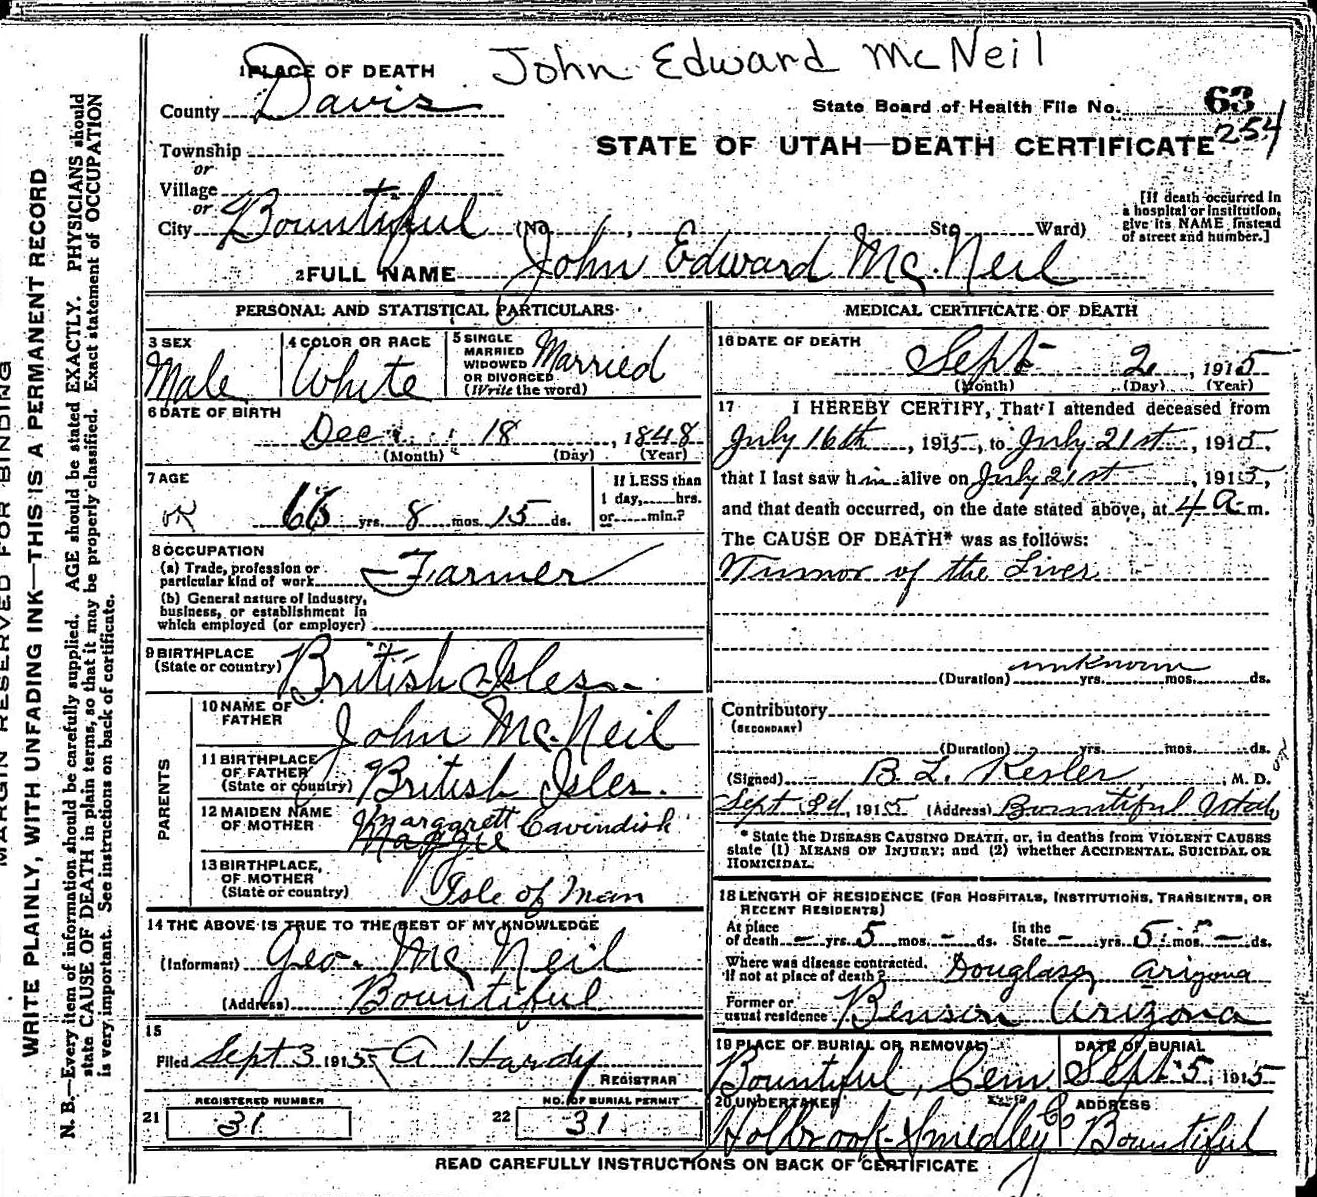 John Edward McNeil
1 PLACE OF DEATH
County Davis
State Board of Health File No. 63
254
STATE OF UTAH—DEATH CERTIFICATE
Township
or
Village
or
City Bountiful (No. , St. Ward)
[If death occurred in
a hospital or institution,
give its NAME instead
of street and number.]
2 FULL NAME John Edward Mc.Neil
PERSONAL AND STATISTICAL PARTICULARS
3 SEX
Male
4 COLOR OR RACE
White
5 SINGLE
MARRIED
WIDOWED
OR DIVORCED
(Write the word)
Married
6 DATE OF BIRTH
Dec. 18, 1848
(Month) (Day) (Year)
7 AGE
OK
66 yrs. 8 mos. 15 ds.
If LESS than
1 day, hrs.
or min.?
8 OCCUPATION
(a) Trade, profession or
particular kind of work Farmer
(b) General nature of industry,
business, or establishment in
which employed (or employer)
9 BIRTHPLACE
(State or country) British Isles
PARENTS
10 NAME OF
FATHER John Mc.Neil
11 BIRTHPLACE
OF FATHER
(State or country) British Isles.
12 MAIDEN NAME
OF MOTHER Margarett Cavindish
Maggie
13 BIRTHPLACE,
OF MOTHER
(State or country) Isle of Man
14 THE ABOVE IS TRUE TO THE BEST OF MY KNOWLEDGE
(Informant) Geo. Mc Neil
(Address) Bountiful
15
Filed Sept 3 1915 A Hardy
REGISTRAR
REGISTERED NUMBER
21 31
NO. OF BURIAL PERMIT
22 31
MEDICAL CERTIFICATE OF DEATH
16 DATE OF DEATH
Sept 2, 1915
(Month) (Day) (Year)
17 I HEREBY CERTIFY, That I attended deceased from
July 16th, 1915, to July 21st, 1915,
that I last saw him alive on July 21st, 1915,
and that death occurred, on the date stated above, at 4 A m.
The CAUSE OF DEATH* was as follows:
Tumor of the Liver
unknown
(Duration) yrs. mos. ds.
Contributory
(SECONDARY)
(Duration) yrs. mos. ds.
(Signed) B. L. Kesler, M. D.
Sept 2d, 1915 (Address) Bountiful Utah
* State the DISEASE CAUSING DEATH, or, in deaths from VIOLENT CAUSES
state (1) MEANS OF INJURY; and (2) whether ACCIDENTAL, SUICIDAL OR
HOMICIDAL.
18 LENGTH OF RESIDENCE (FOR HOSPITALS, INSTITUTIONS, TRANSIENTS, OR
RECENT RESIDENTS)
At place
of death - yrs. 5 mos. - ds.
In the
State - yrs. 5 mos. - ds.
Where was disease contracted,
if not at place of death? Douglas, Arizona
Former or
usual residence Benson Arizona
19 PLACE OF BURIAL OR REMOVAL
Bountiful, Cem
DATE OF BURIAL
Sept 5, 1915
20 UNDERTAKER
Holbrook-Smedley Co
ADDRESS
Bountiful
READ CAREFULLY INSTRUCTIONS ON BACK OF CERTIFICATE
MARGIN RESERVED FOR BINDING
WRITE PLAINLY, WITH UNFADING INK—THIS IS A PERMANENT RECORD
N. B.—Every item of information should be carefully supplied. AGE should be stated EXACTLY. PHYSICIANS should
state CAUSE OF DEATH in plain terms, so that it may be properly classified. Exact statement of OCCUPATION
is very important. See instructions on back of certificate.